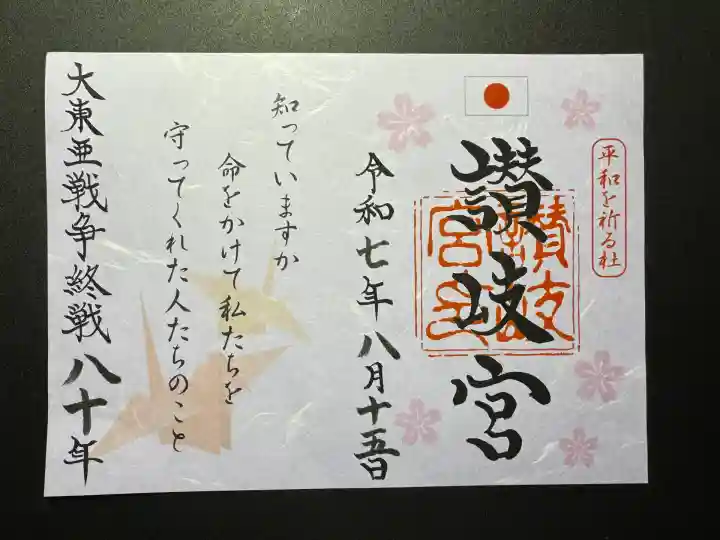 平和を祈る社
讃岐宮
讃岐宮印
令和七年八月十五日
知っていますか
命をかけて私たちを
守ってくれた人たちのこと
大東亜戦争終戦八十年